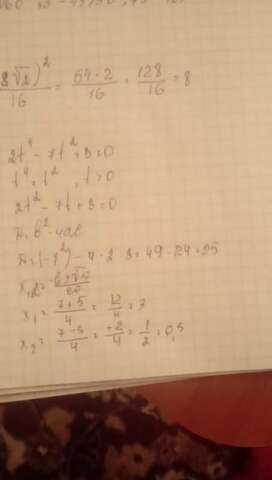 (8√2)² / 16 = 64·2 / 16 = 128 / 16 = 8
2t⁴ - 7t² + 3 = 0
t⁴ = t², t > 0
2t² - 7t + 3 = 0
D = b² - 4ac
D = (-7²) - 4·2·3 = 49 - 24 = 25
x₁ = 7+5 / 4 = 12 / 4 = 3
x₂ = 7-5 / 4 = 2 / 4 = 1 / 2 = 0,5